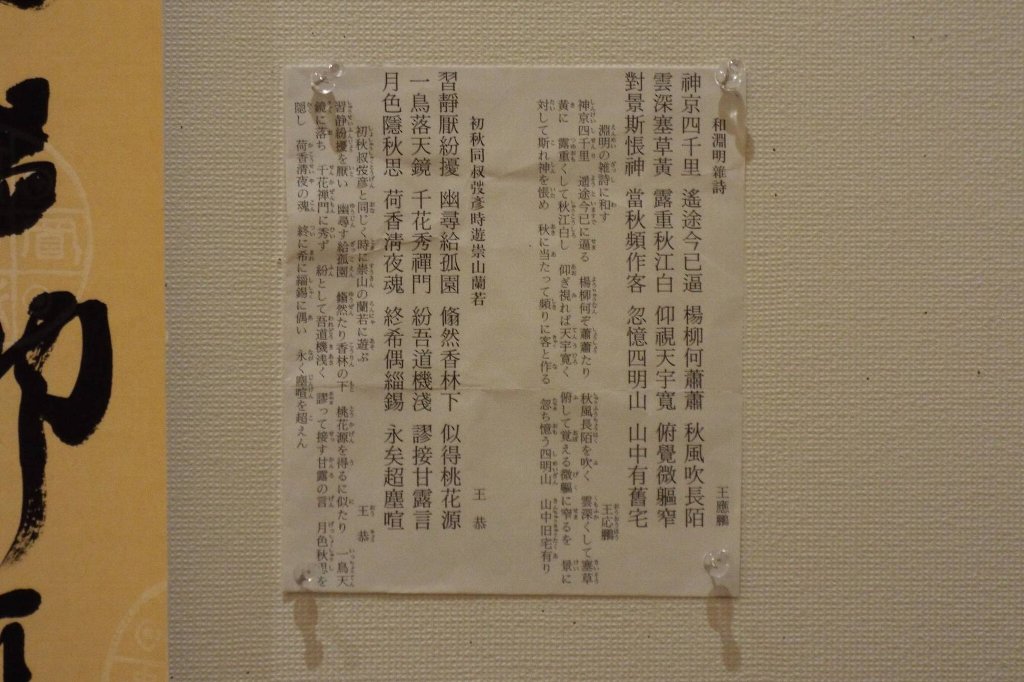 和淵明雑詩
王應鵬
神京四千里 遙途今已逼 楊柳何蕭蕭 秋風吹長陌
雲深塞草黃 露重秋江白 仰視天宇寬 俯覺微軀窄
對景斯悵神 當秋頻作客 忽憶四明山 山中有舊宅
淵明の雑詩に和す
王応鵬
神京四千里 遥途今已に逼る 楊柳何ぞ蕭蕭たり 秋風長陌を吹く 雲深くして塞草
黄に 露重くして秋江白し 仰ぎ視れば天宇寛く 俯して覚える微軀に窄るを 景に
対して斯れ神を悵め 秋に当たって頻りに客と作る 忽ち憶う四明山 山中旧宅有り
初秋同叔弢彦時遊崇山蘭若
王 恭
習靜厭紛擾 幽尋給孤園 翛然香林下 似得桃花源
一鳥落天鏡 千花秀禪門 紛吾道機淺 謬接甘露言
月色隱秋思 荷香淸夜魂 終希偶緇錫 永矣超塵喧
初秋叔弢彦と同じく時に崇山の蘭若に遊ぶ
王 恭
習静紛擾を厭い 幽尋す給孤園 翛然たり香林の下 桃花源を得るに似たり 一鳥天
鏡に落ち 千花禅門に秀ず 紛として吾道機浅く 謬って接す甘露の言 月色秋思を
隠し 荷香清夜の魂 終に希に緇錫に偶い 永く塵喧を超えん